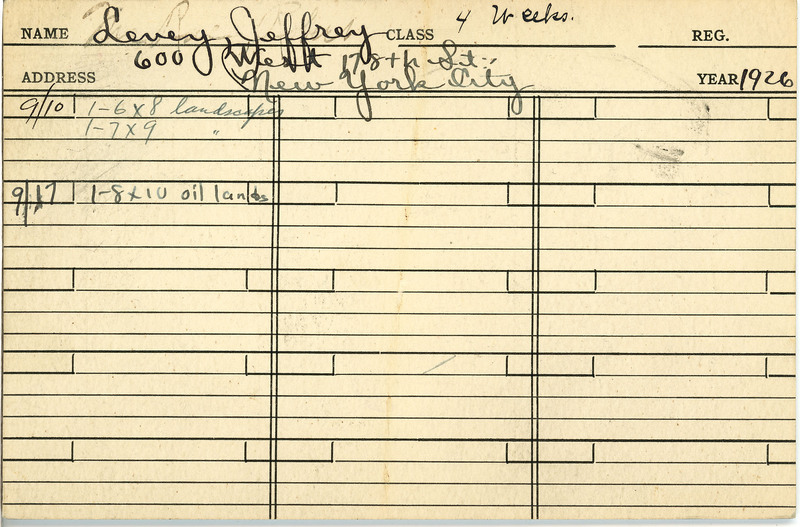 NAME Levey, Jeffrey CLASS 4 Weeks. REG.
ADDRESS 600 West 178th St.
New York City YEAR 1926
9/10 1-6x8 landscapes
1-7x9 "
9/17 1-8x10 oil lands